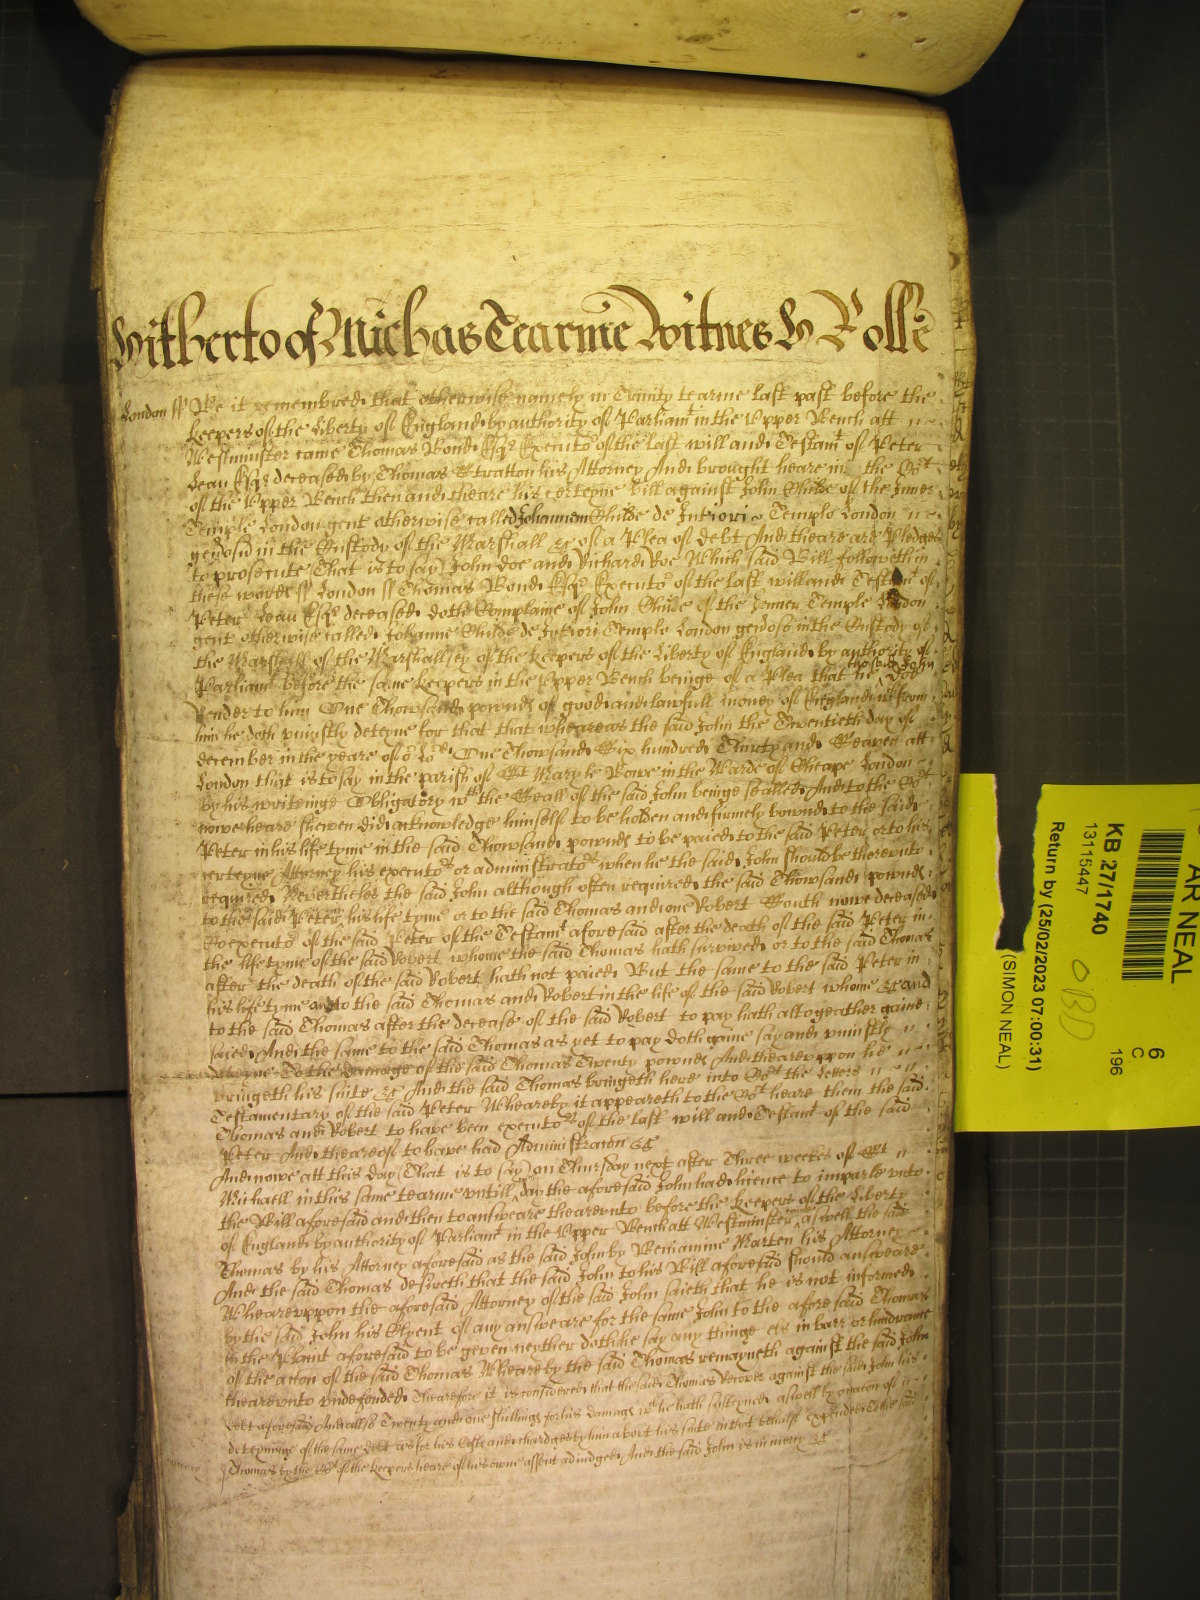 Hitherto of Michas Tearme Witnes H Rolle
London ss Be it remembred that otherwise namely in Trinity tearme last past before the
Keepers of the Liberty of England by authority of Parliamt in the Upper Bench att
Westminster came Thomas Bond Esqr Executor of the last will and Testamt of Peter
Leau Esqr deceased by Thomas Stratton his Attorney And brought heare into the Cort
of the Upper Bench then and theare his certeyne Bill against John Childe of the Inner
Temple London gent otherwise called Johannem Childe de Interiori Templo London
generosum in the Custody of the Marshall &c of a Plea of debt And theare are Pledges
to prosecute That is to say John Doe and Richard Roe Which said Bill followeth in
these words ss London ss Thomas Bond Esqr Executor of the last will and Testamt of
Peter Leau Esqr deceased doth Complaine of John Childe of the Inner Temple London
gent otherwise called Johanne Childe de Interiori Templo London generoso in the Custody of
the Marshall of the Marshallsey of the Keepers of the Liberty of England by authority of
Parliamt before the same Keepers in the Upper Bench beinge of a Plea that he the said John doe
Render to him One Thowsand pownds of good and lawfull money of England wch from
him he doth uniustly deteyne for that that wheareas the said John the Twentieth day of
december in the yeare of or Lord One Thowsand Six hundred Thirty and Seaven att
London that is to say in the parish of St Mary le Bowe in the Warde of Cheape London
by his writeinge Obligatory wth the Seall of the said John beinge sealled And to the Cort
nowe heare shewen did acknowledge himself to be holden and firmely bownd to the said
Peter in his life tyme in the said Thowsand pownds to be paied to the said Peter or to his
certeyne Attorney his executors or administrators when he the said John should be thereunto
required Neverthelss the said John although often required the said Thowsand pownds
to the said Peter in his life tyme or to the said Thomas and one Robert South nowe deceased
Coexecutor of the said Peter of the Testamt aforesaid after the death of the said Peter in
the life tyme of the said Robert whome the said Thomas hath survived or to the said Thomas
after the death of the said Robert hath not paied But the same to the said Peter in
his life tyme and to the said Thomas and Robert in the life of the said Robert whome &c and
to the said Thomas after the decease of the said Robert to pay hath altogeather gaine
saied And the same to the said Thomas as yet to pay doth gaine say and uniustly
deteyne To the damage of the said Thomas Twenty pownds And theareuppon he
bringeth his suite &c And the said Thomas bringeth here into Cort the Letters
Testamentary of the said Peter Wheareby it appeareth to the Cort heare them the said
Thomas and Robert to have been executors of the last will and Testamt of the said
Peter And theareof to have had Administracon &c
And nowe att this day (That is to say) on Thursday next after Three weekes of St
Michaell in this same tearme untill day the aforesaid John had licence to imparle unto
the Bill aforesaid and then to answeare theareunto before the Keepers of the Liberty
of England by authority of Parliamt in the Upper Bench att Westminster aswell the said
Thomas by his Attorney aforesaid as the said John by Beniamine Marten his Attorney
And the said Thomas desireth that the said John to his Bill aforesaid should answeare
Wheareuppon the aforesaid Attorney of the said John saieth that he is not informed
by the said John his Clyent of any answeare for the same John to the aforesaid Thomas
in the Plaint aforesaid to be given neyther doth he say any thinge els in barr or hindrance
of the action of the said Thomas Wheareby the said Thomas remayneth against the said John
theareunto undefended Therefore it is considered that the said Thomas Recover against the said John his
debt aforesaid And allso Twenty and one shillings for his damags wch he hath susteyned aswell by reason of
deteyninge of the same debt as for his Costs and chardges by him about his suite in that behalf expended to the said
Thomas by the Cort of the Keepers heare of his owne assent adiudged And the said John is in mercy &c
AR NEAL
6
C
196
KB 27/1740
13115447
Return by (25/02/2023 07:00:31)
(SIMON NEAL)
OBD